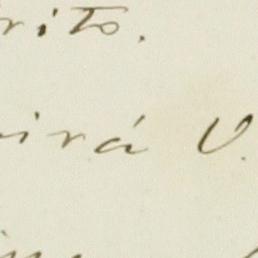 rito.
irá V.